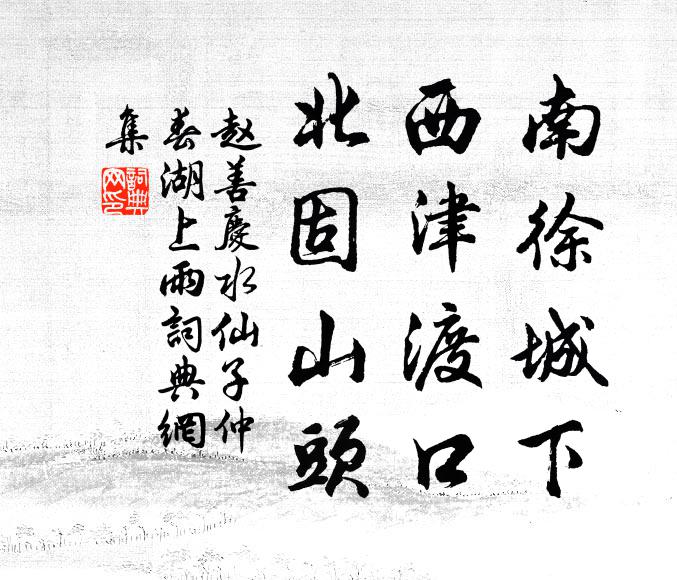 南徐城下
西津渡口
北固山頭
赵善慶水仙子仲
春湖上雨詞典網
集
詞典
网印